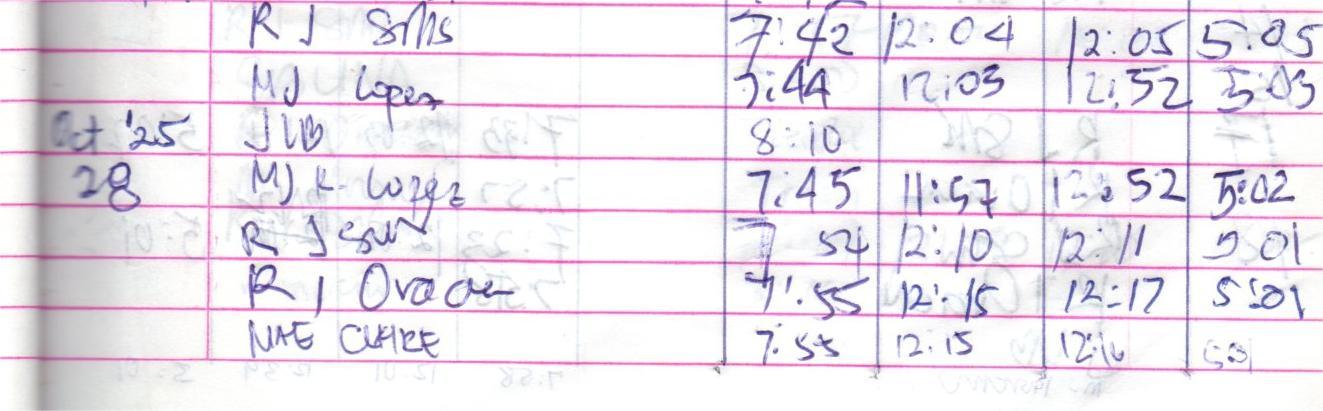 R J Sills 7:42 12:04 12:05 5:05
MJ Lopez 7:44 12:03 12:52 5:03
Oct '25 JLB 8:10
28 MJ K. Lopez 7:45 11:57 12:52 5:02
R J 7 54 12:10 12:11 5 01
R J 7:55 12:15 12:17 5:01
NAE CLAIRE 7:55 12:15 12:16 501